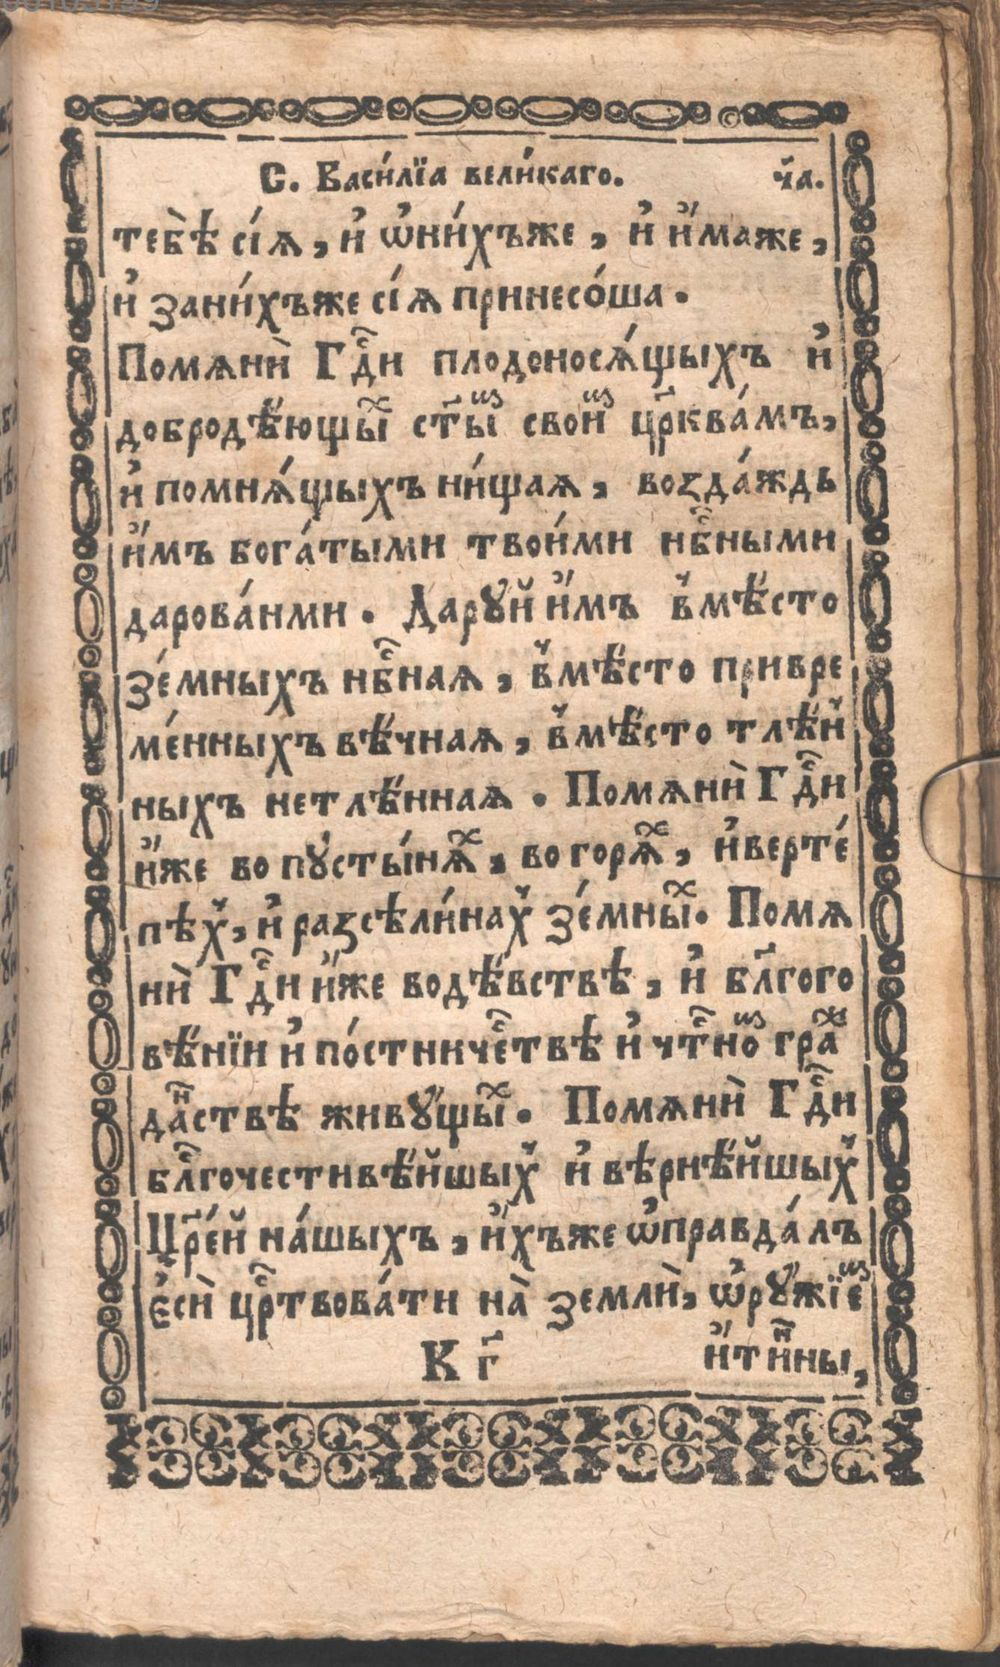 С. Васи́лїа вели́каго. ч҃а.
тебѣ̀ сі́ѧ, и҆ ѡ҆ни́хъже, и҆ и҆́маже,
и҆ зани́хъже сі́ѧ принесо́ша.
Помѧнѝ Гдⷭ҇и плодоносѧ́щыхъ и҆
добродѣ́ющыⷯ ст҃ыⷨ свои́ⷨ цр҃ква́мъ,
и҆ помнѧ́щыхъ ни́щаѧ, возда́ждь
и҆̀мъ бога́тыми твои́ми нбⷭ҇ными
дарова́нми. Дарꙋ́й и҆̀мъ вмѣ́сто
зе́мныхъ нбⷭ҇наѧ, вмѣ́сто привре
ме́нныхъ вѣ́чнаѧ, вмѣ́сто тлѣ́н
ныхъ нетлѣ́ннаѧ. Помѧнѝ Гдⷭ҇и
и҆́же во пꙋсты́нѧⷯ, во горѧⷯ, и҆ верте́
пѣх, и҆ разсѣли́нах зе́мныⷯ. Помѧ
нѝ Гдⷭ҇и и҆́же во дѣ́вствѣ, и҆ бл҃гого
вѣ́нїи и҆ по́стничеⷭ҇твѣ и҆ чтⷭ҇ноⷨ граⷤ
даⷩствѣ живꙋ́щыⷯ. Помѧнѝ Гдⷭ҇и
бл҃гочестивѣ́йшых и҆ вѣрнѣ́йшых
Цр҃е́й на́шыхъ, и҆́хъже ѡ҆правда́лъ
є҆сѝ црⷭ҇твова́ти на̀ землѝ, ѡ҆рꙋ́жїеⷨ
К г҃ и҆́тиⷩны,